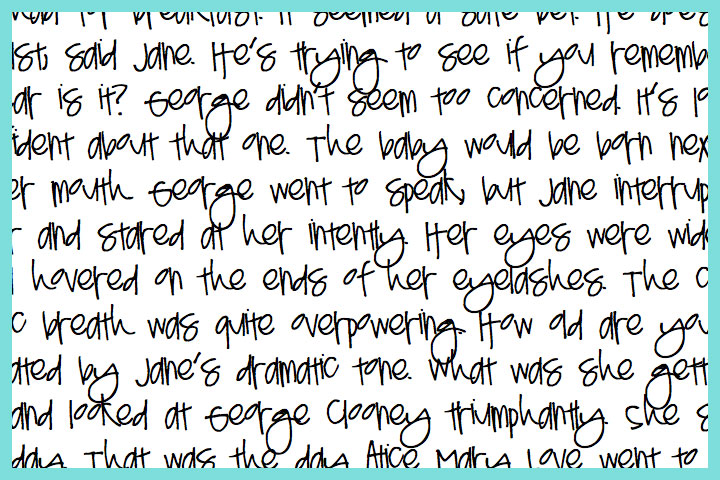 for breakfast. It seemed a safe bet. He
said Jane. He's trying to see if you
is it? George didn't seem too concerned. It's
about that one. The baby would be born
mouth George went to speak, but Jane
and stared at her intently. Her eyes were
hovered on the ends of her eyelashes. The
breath was quite overpowering. How old are
by Jane's dramatic tone. What was she
and looked at George Clooney triumphantly. She
That was the day Alice Mary Love went to